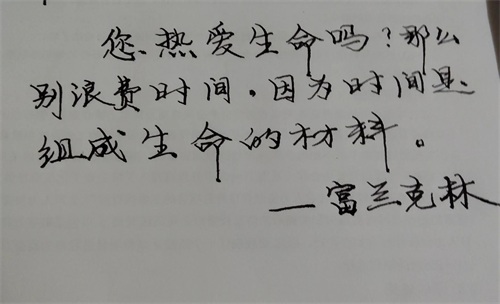 您热爱生命吗？那么
别浪费时间。因为时间是
组成生命的材料。
—富兰克林